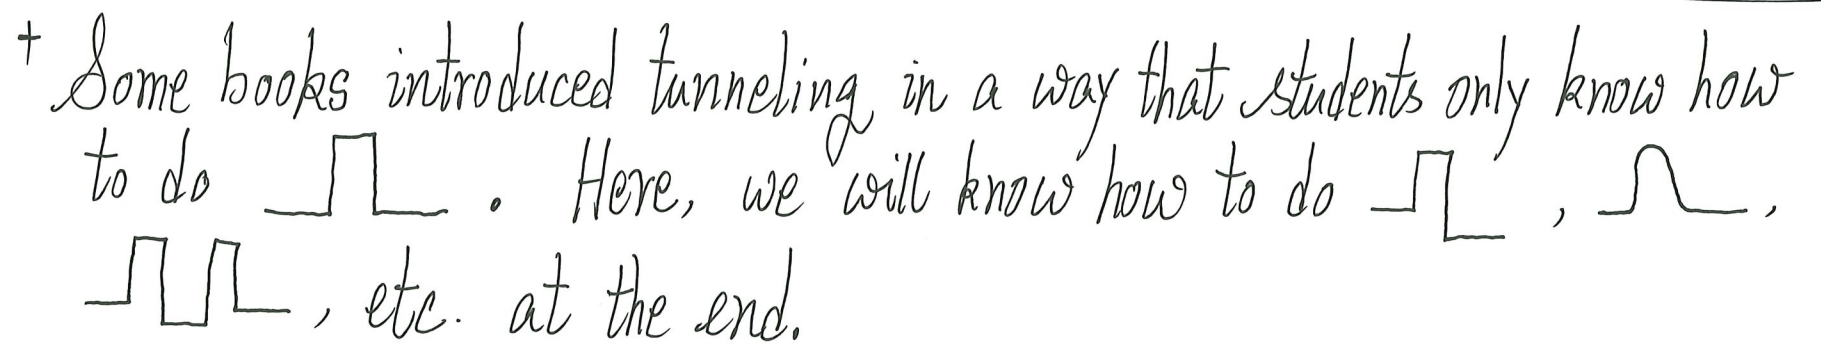 † Some books introduced tunneling in a way that students only know how
to do . Here, we will know how to do , ,
, etc. at the end.